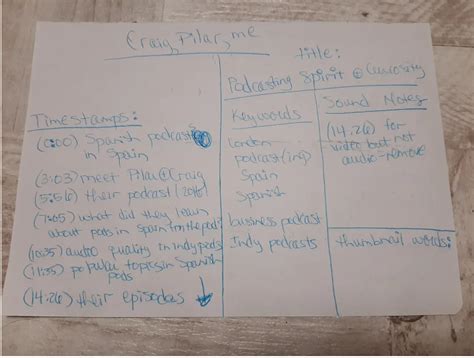 Craig, Pilar, me
title:
Podcasting Spirit @ Curiosity
Timestamps:
(0:00) Spanish podcasts
in Spain
(3:03) meet Pilar @ Craig
(5:56) their podcast (2016)
(7:05) what did they learn
about pods in Spain from the pod?
(10:35) audio quality in indy pods
(11:55) popular topics in Spanish
pods
(14:26) their episodes
Keywords
London
podcast(ing)
Spain
Spanish
business podcast
Indy podcasts
Sound Notes
(14:26) for
video but not
audio=remove
thumbnail words: